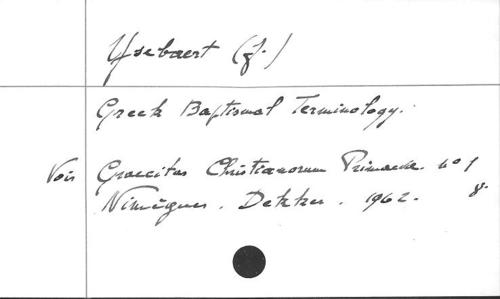 Ysebaert (J.)
Greek Baptismal Terminology.
Voir Graecitas Christianorum Primaeva n° 1
Nimègues. Dekker. 1962. 8.